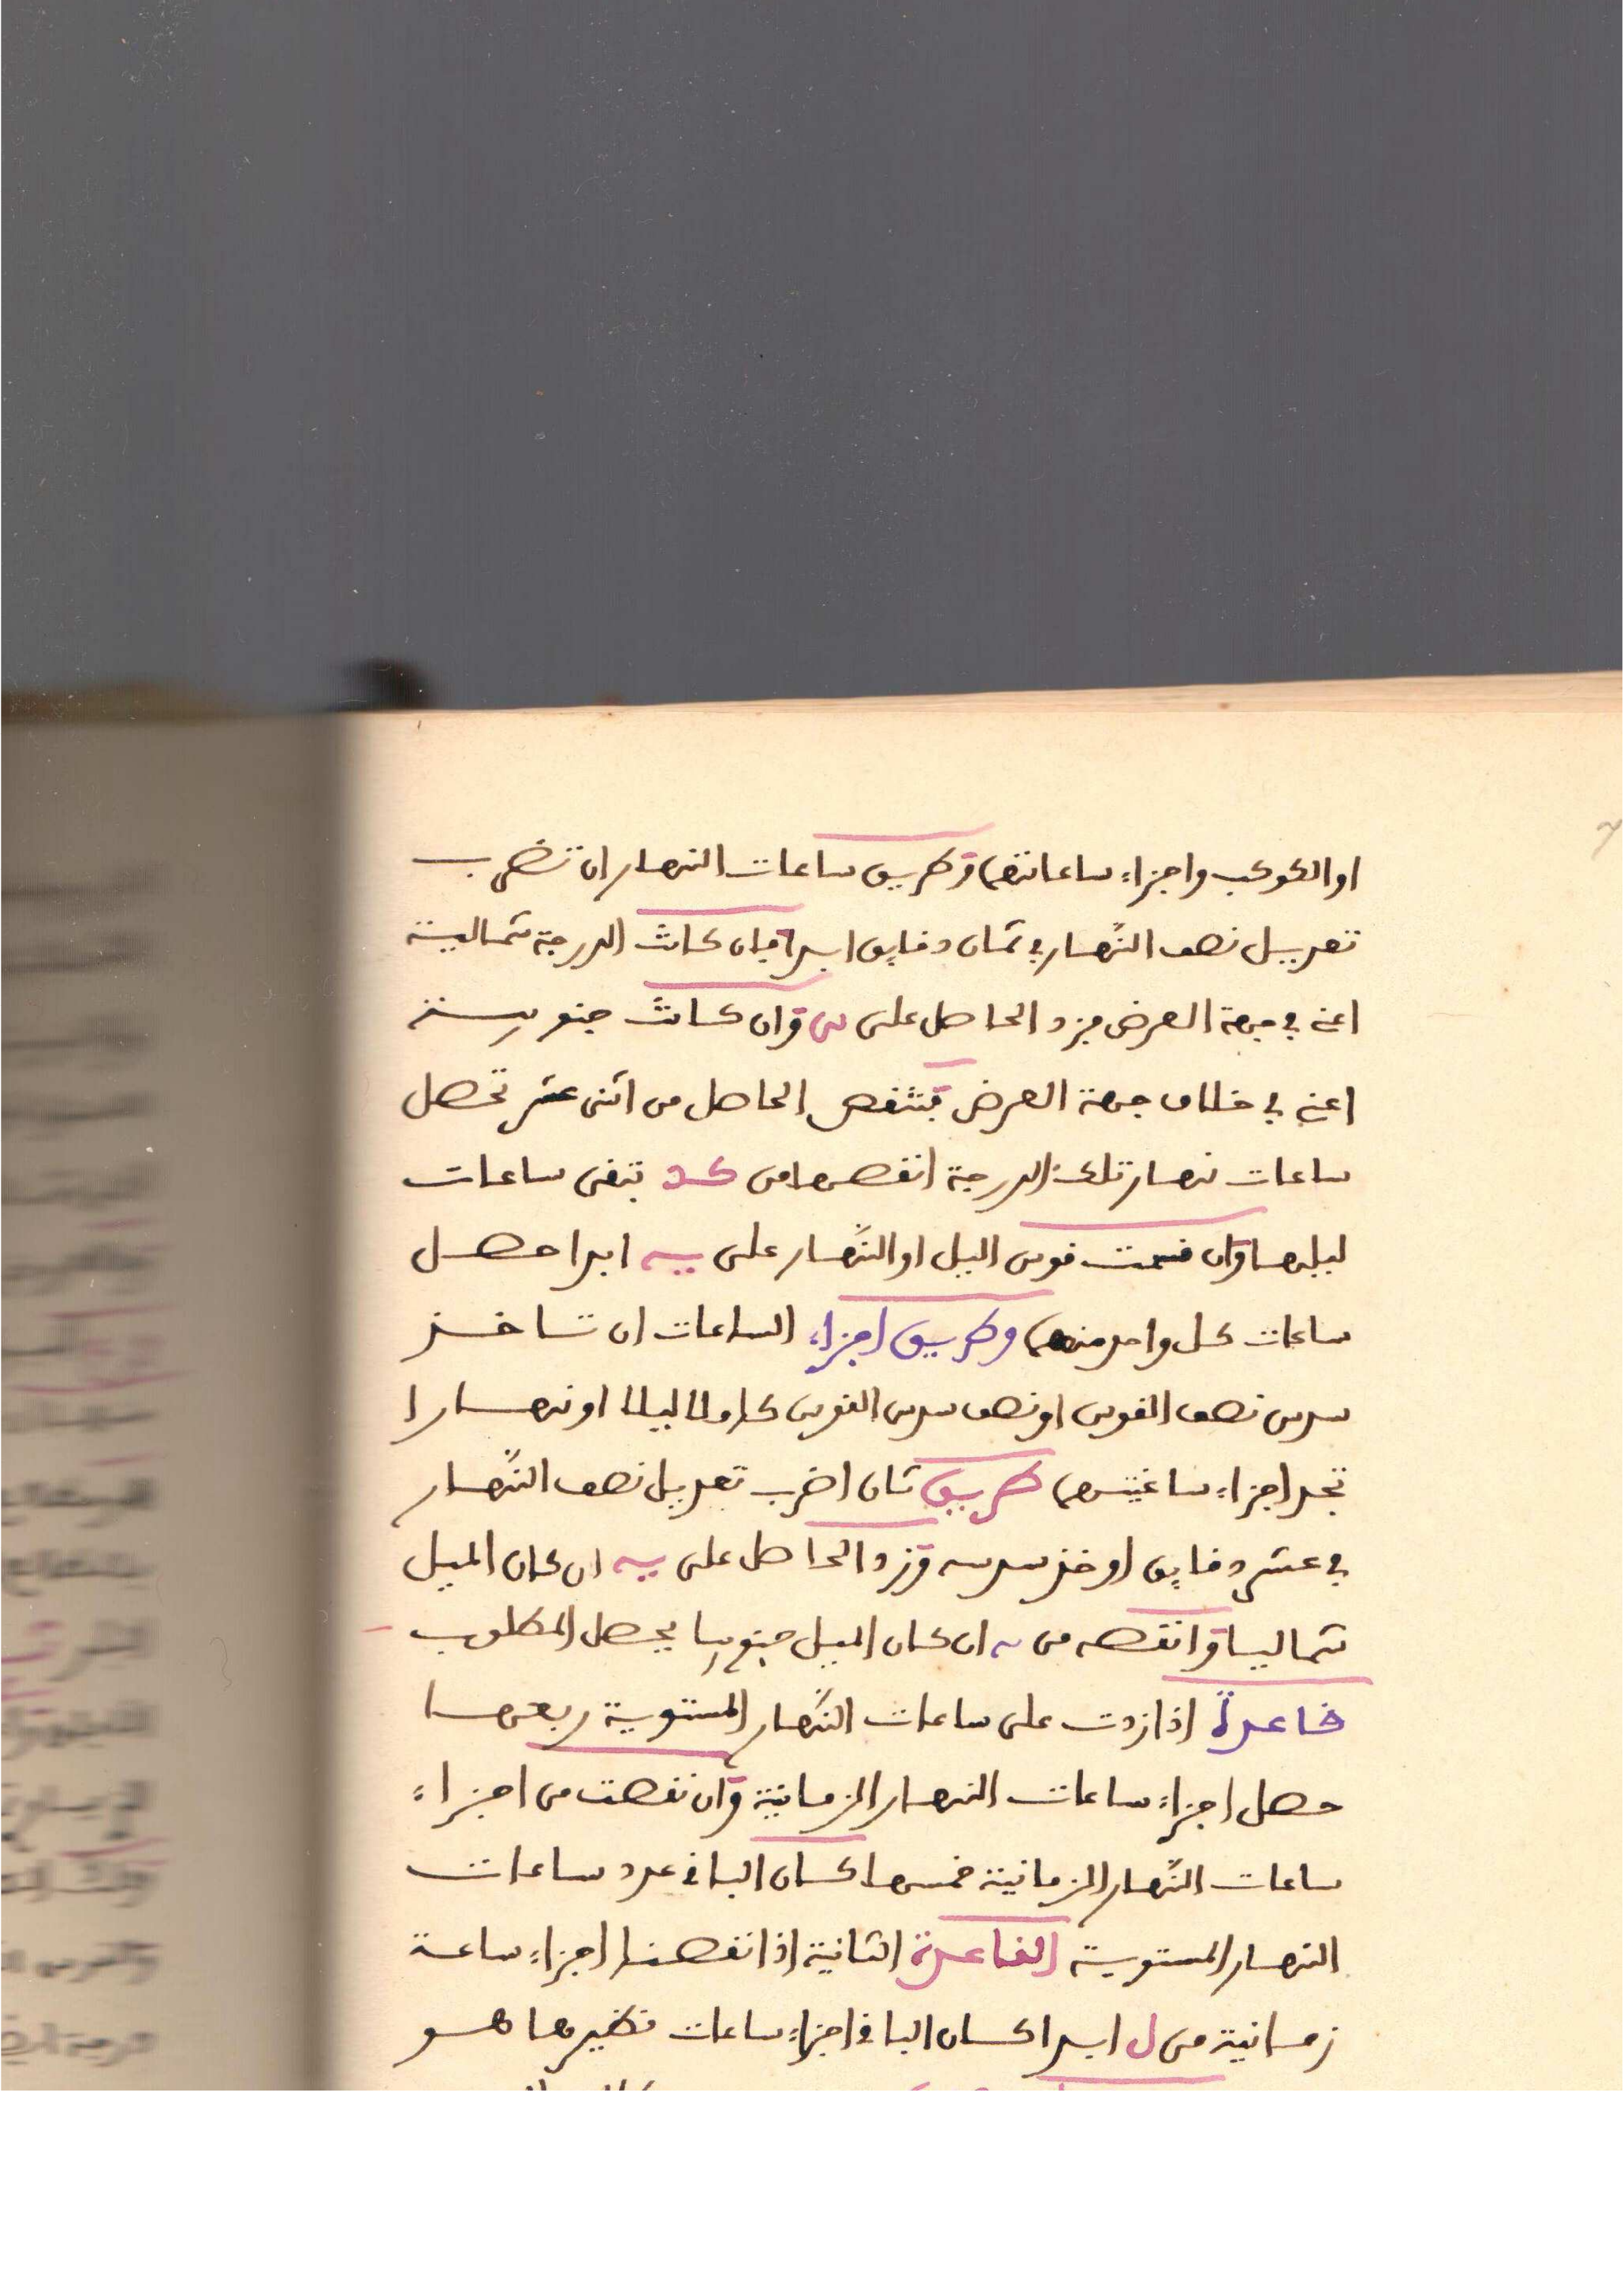 او الكوكب واجزاء ساعاتهما وطريق ساعات النهار ان تضرب
تعديل نصف النهار في ثمان دقايق ابدا فان كانت الدرجة شمالية
اعني في جهة العرض فزد الحاصل على يب وان كانت جنوبية
اعني في خلاف جهة العرض فتنقص الحاصل من اثنى عشر تحصل
ساعات نهار تلك الدرجة انقصها من كد تبقى ساعات
ليلها وان قسمت قوس اليل او النهار على يه ابدا حصل
ساعات كل واحد منهما وطريق اجزاء الساعات ان تاخذ
سدس نصف القوس او نصف سدس القوس كاملا ليلا او نهارا
تجد اجزاء ساعتيهما طريق ثان اضرب تعديل نصف النهار
في عشر دقايق او خذ سدسه وزد الحاصل على يه ان كان الميل
شماليا وانقصه من يه ان كان الميل جنوبيا يحصل المطلوب
قاعدة اذا زدت على ساعات النهار المستوية ربعها
حصل اجزاء ساعات النهار الزمانية وان نقصت من اجزاء
ساعات النهار الزمانية خمسها كان الباقي عدد ساعات
النهار المستوية القاعدة الثانية اذا نقصنا اجزاء ساعة
زمانية من ل ابدا كان الباقي اجزاء ساعات نظيرها هو